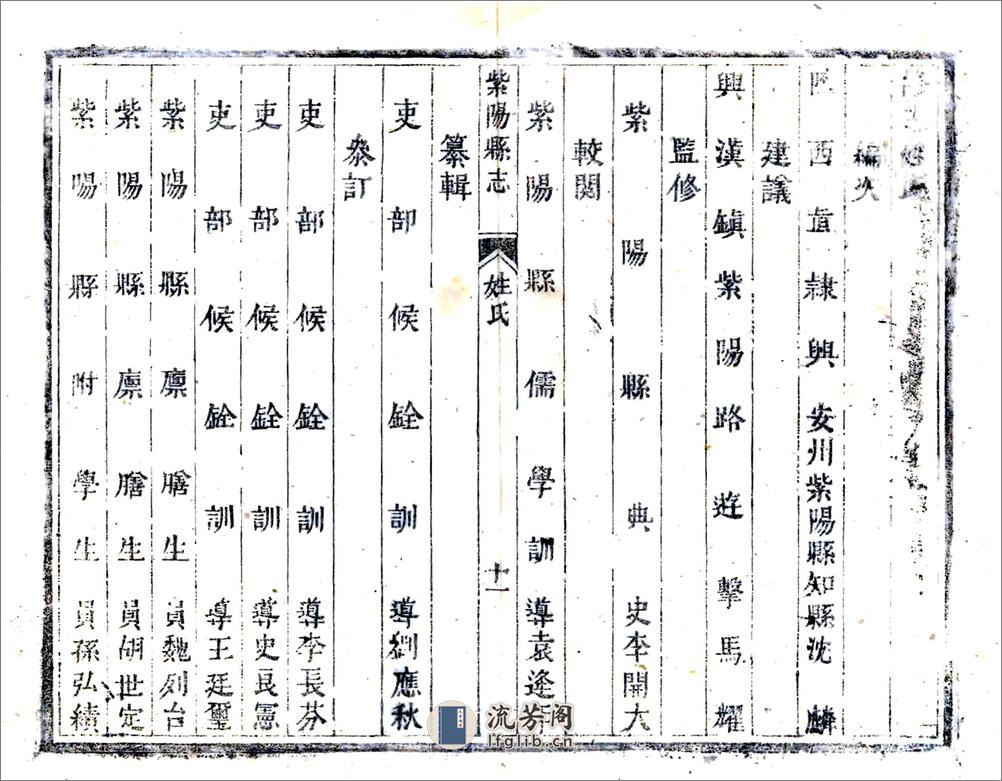 姓氏
編次
西直隸興安州紫陽縣知縣沈麟
建議
興漢鎮紫陽路遊擊馬耀
監修
紫陽縣典史李開大
較閱
紫陽縣儒學訓導袁逢
紫陽縣志 姓氏 十一
纂輯
吏部候銓訓導劉應秋
叅訂
吏部候銓訓導李長芬
吏部候銓訓導史良憲
吏部候銓訓導王廷璽
紫陽縣廩膳生員魏列台
紫陽縣廩膳生員胡世定
紫陽縣附學生員孫弘績
流芳阁
lfglib.cn